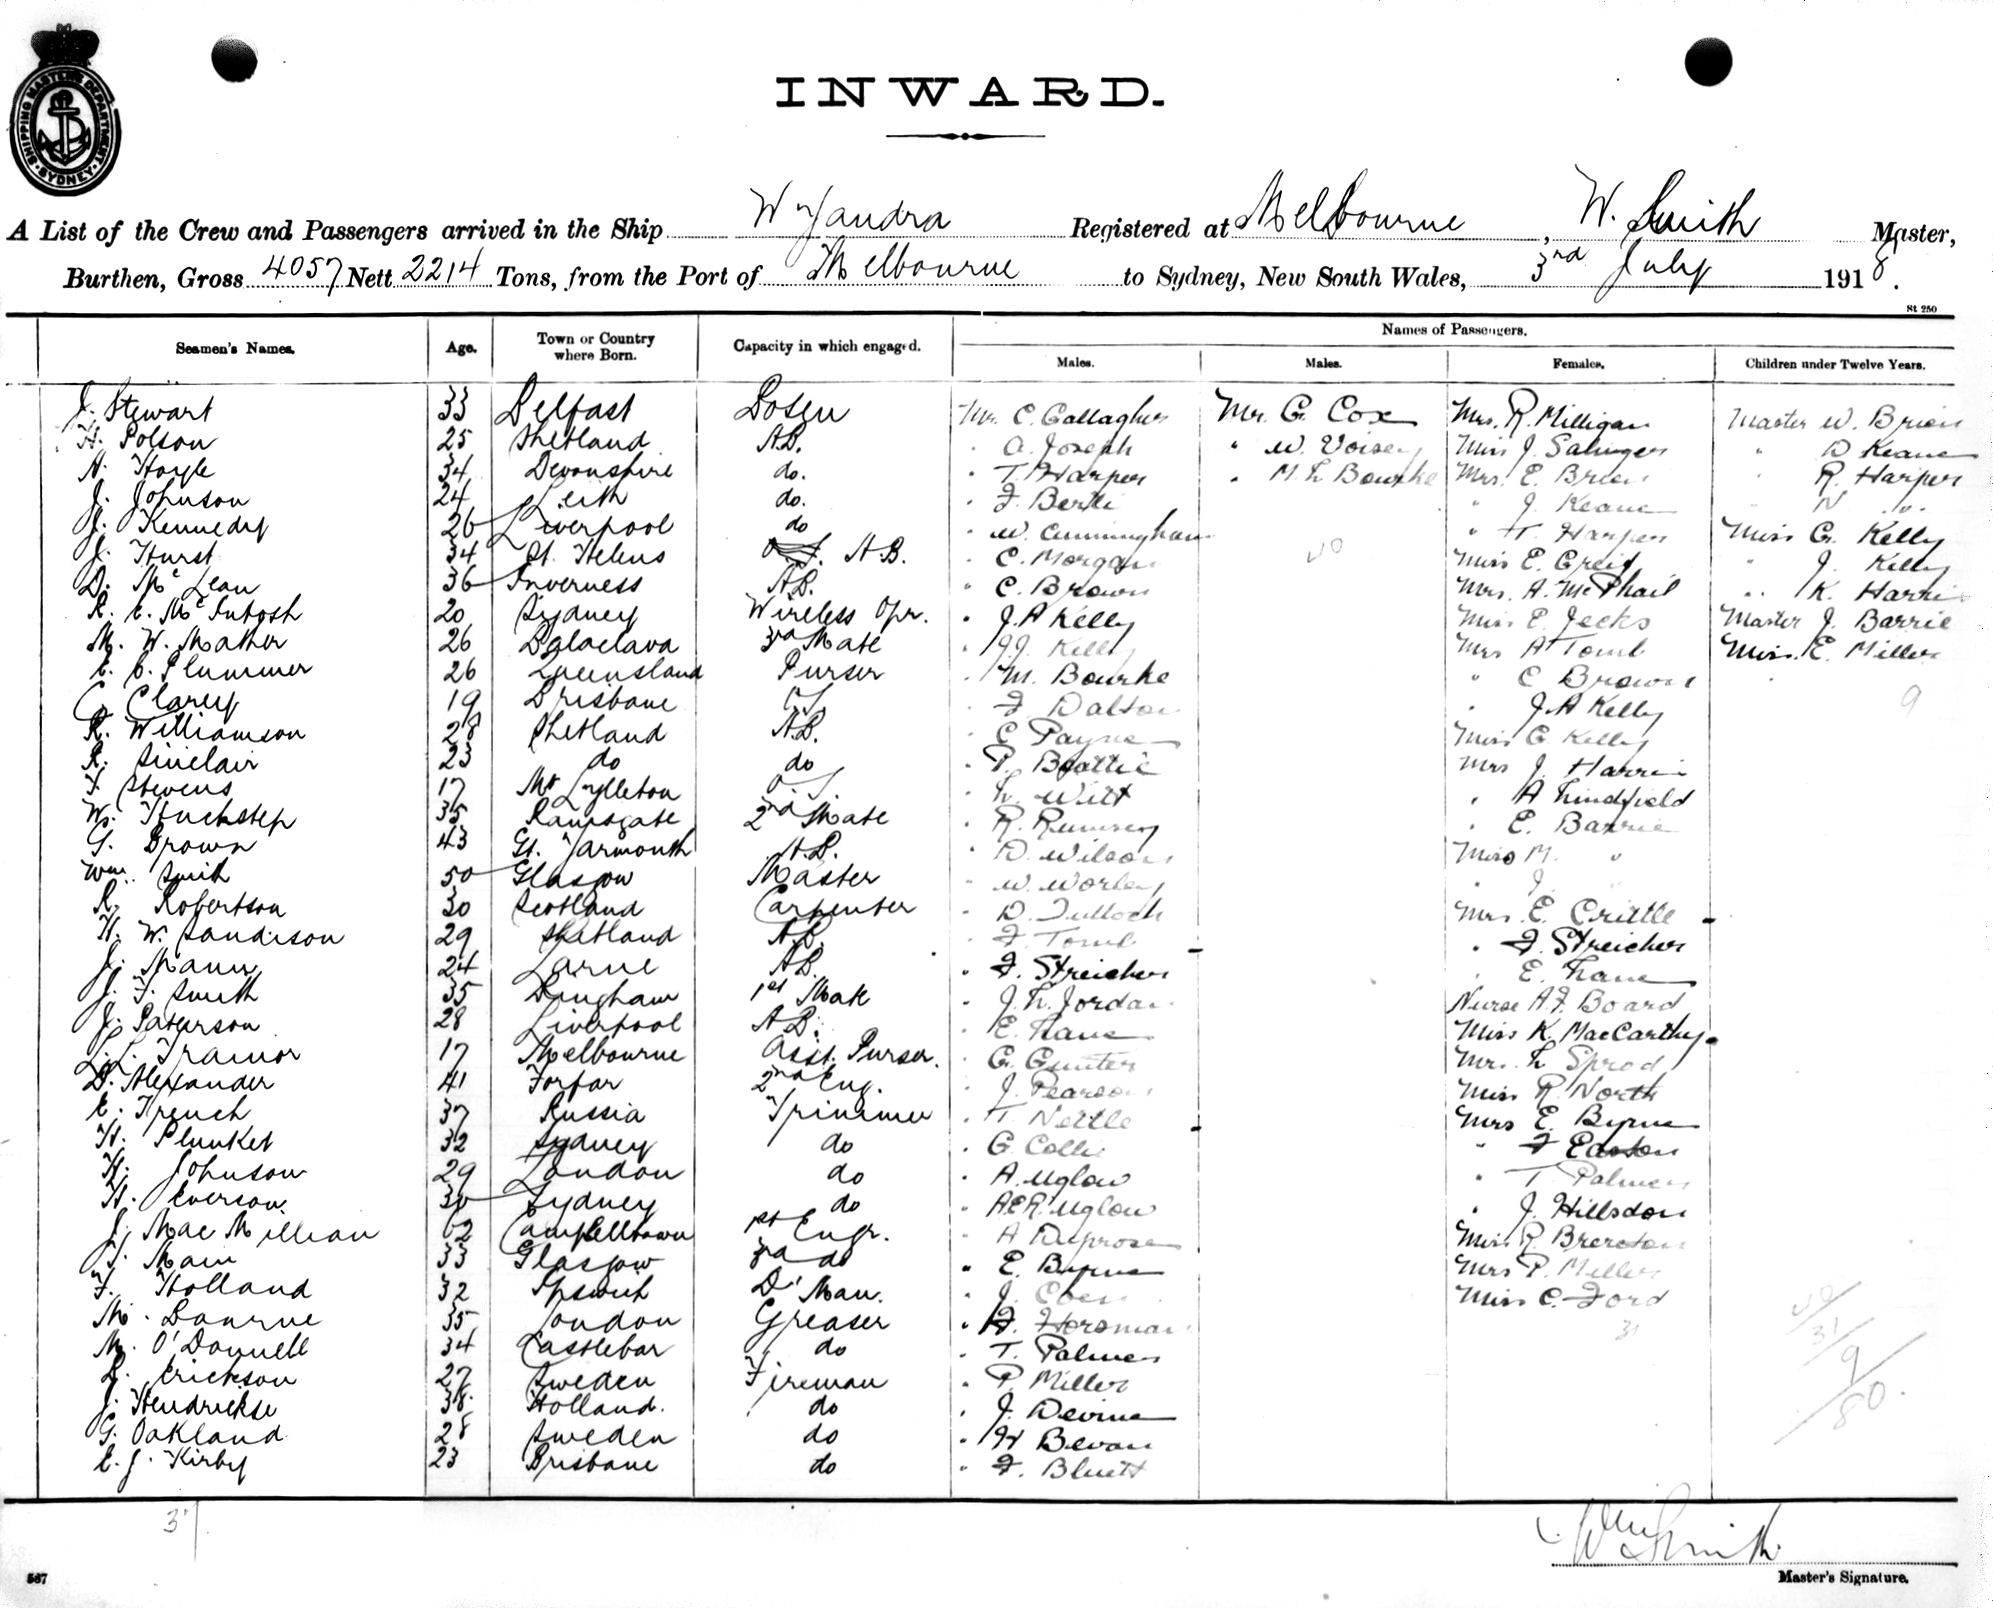 SHIPPING MASTER'S DEPARTMENT
SYDNEY
INWARD.
A List of the Crew and Passengers arrived in the Ship Wyandra Registered at Melbourne, W. Smith Master,
Burthen, Gross 4057 Nett 2214 Tons, from the Port of Melbourne to Sydney, New South Wales, 3rd July 1918.
St 250
Seamen's Names. Age. Town or Country where Born. Capacity in which engaged. Names of Passengers.
Males. Males. Females. Children under Twelve Years.
J. Stewart 33 Belfast Bosen Mr. C. Gallagher Mr. G. Cox Mrs. R. Milligan Master W. Brien
H. Polson 25 Shetland A.B. " A. Joseph " W. Voisey Miss J. Salinger " D Keane
A. Hoyle 34 Devonshire do. " T. Harper " M. L Bourke Mrs. E. Brien " R. Harper
J. Johnson 24 Leith do. " F. Berti " J. Keane " N "
J. Kennedy 26 Liverpool do " W. Cunningham " H. Harper Miss G. Kelly
J. Hurst 34 St. Helens A.B. " C. Morgan 40 Miss E. Greig " J. Kelly
D. McLean 36 Inverness A.B. " C. Brown Mrs. A. McPhail " K. Harris
R. C. McIntosh 20 Sydney Wireless Opr. " J. A Kelly Miss E. Jecks Master J. Barrie
M. W. Mather 26 Balaclava 3rd Mate " J. J. Kelly Mrs A Tomb Miss. E. Miller
E. C. Plummer 26 Queensland Purser " M. Bourke " C Brown
C. Clarey 19 Brisbane O.S. " F Dalton " J. A Kelly 9
R. Williamson 28 Shetland A.B. " C Payne Miss G Kelly
R. Sinclair 23 do do " P. Beattie Mrs J. Harris
F. Stevens 17 Mt Lyttleton O.S. " L. Witt " A Lindfield
W. Huckstep 35 Ramsgate 2nd Mate " R. Rumsey " E. Barrie
G. Brown 43 Gt. Yarmouth A.B. " D. Wilson Miss M. "
Wm. Smith 50 Glasgow Master " W. Worley " J. "
R. Robertson 30 Scotland Carpenter " D. Tulloch Mrs. E. Crittle
H. W. Sandison 29 Shetland A.B. " F. Tomb " F. Streicher
J. Mann 24 Larne A.B. " F. Streicher " E. Lane
J. F. Smith 35 Dingham 1st Mate " J. L. Jordan Nurse A. F. Board
J. Paterson 28 Liverpool A.B. " E. Lane Miss K. MacCarthy
L. Trainor 17 Melbourne Asst. Purser. " G. Gunter Mrs. L Sprod
D. Alexander 41 Forfar 2nd Eng. " J. Pearson Miss R. North
E. French 37 Russia Trimmer " T. Nettle Mrs E. Byrne
H. Plunket 32 Sydney do " G Collie " F Easton
H. Johnson 29 London do " A. Uglow " T. Palmer
H. Everson. 30 Sydney do " A.E.R. Uglow " J. Hillsdon
J. MacMillian 62 Campbelltown 1st Engr. " A Disprose Miss R. Brereton
T. Main 33 Glasgow 3rd do " E. Byrne Mrs P. Miller
F. Holland 32 Ipswich D'Man. " J. Coen Miss C. Ford
M. Bourne 35 London Greaser " H. Horsman 31
M. O'Donnell 34 Castlebar do " T. Palmer
D. Erickson 27 Sweden Fireman " P. Miller
J. Hendrickse 38. Holland. do " J. Devine
G. Oakland 28 Sweden do " H Bevan
E. J. Kirby 23 Brisbane do " F. Bluett
40
31
9
80.
37
Wm Smith
Master's Signature.
567